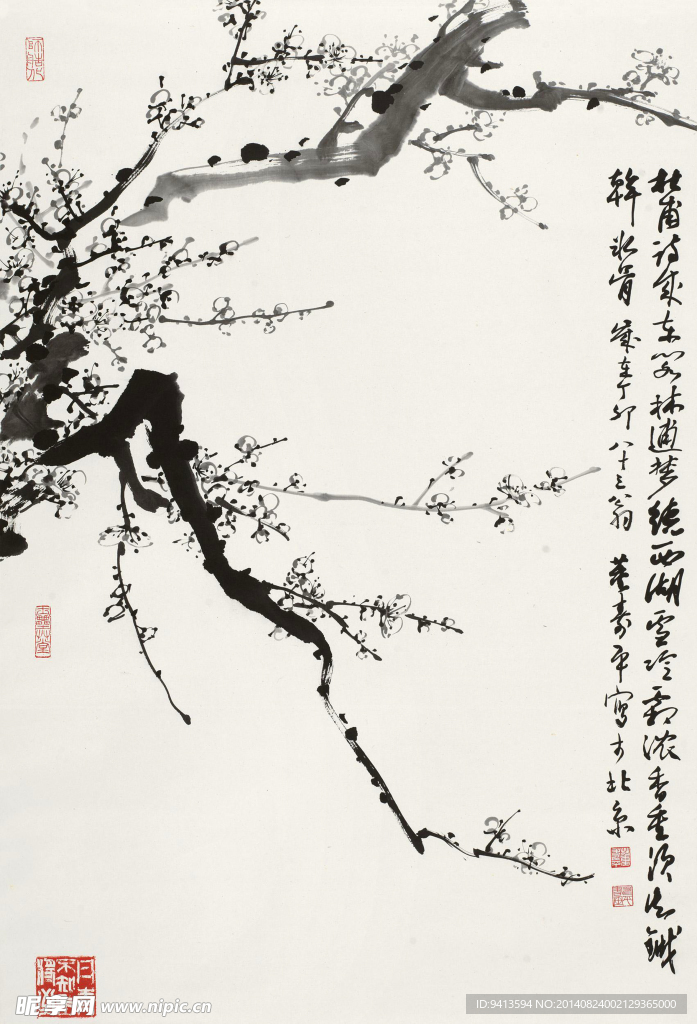 杜甫诗成东阁林逋梦绕西湖雪冷霜浓香重须知铁
幹冰骨 岁在丁卯八十三八翁 董寿平写于北京
昵享网 www.nipic.cn
ID:9413594 NO:20140824002129365000